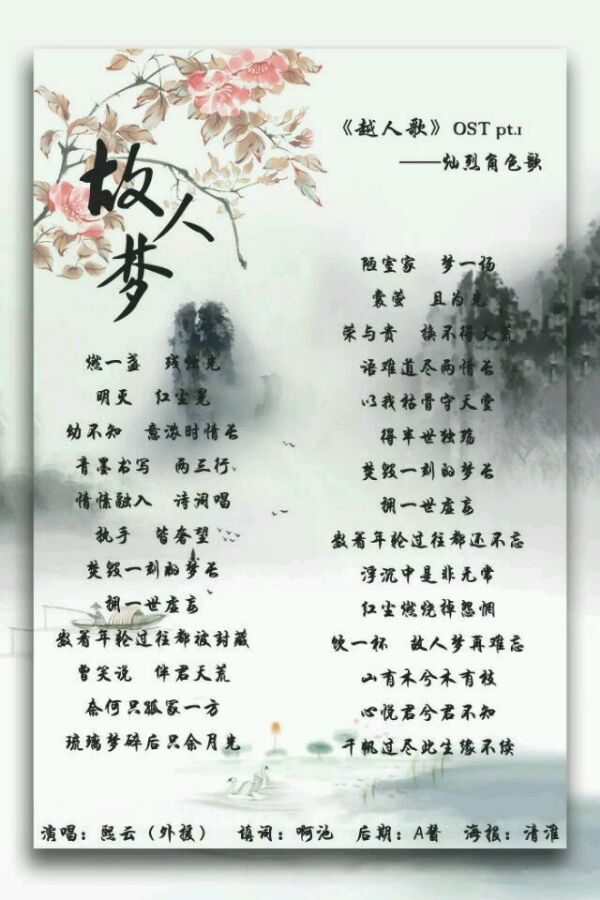 故人梦
《越人歌》OST pt.1
——灿烈角色歌
燃一盏 残烛光
明灭 红尘晃
幼不知 意浓时情长
青墨书写 两三行
情愫融入 诗词唱
执手 皆奢望
焚毁一刹的梦长
拥一世虚妄
数着年轮过往都被封藏
曾笑说 伴君天荒
奈何只孤冢一方
琉璃梦碎后只余月光
陋室家 梦一场
囊萤 且为光
荣与贵 换不得天荒
语难道尽两情长
以我枯骨守天堂
得半世独殇
焚毁一刹的梦长
拥一世虚妄
数着年轮过往都还不忘
浮沉中是非无常
红尘燃烧掉怨惆
饮一杯 故人梦再难忘
山有木兮木有枝
心悦君兮君不知
千帆过尽此生缘不续
演唱：熙云（外援） 填词：啊池 后期：A酱 海报：清淮